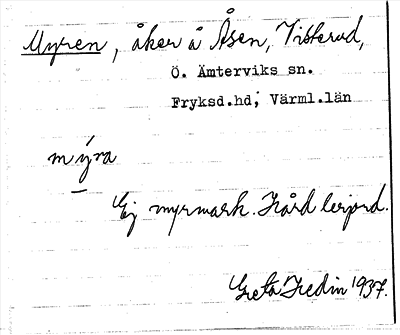 Myren, åker å Åsen, Visterud,
Ö. Ämterviks sn.
Fryksd.hd, Värml.län
mýra
Ej myrmark. Hård lerjord.
Greta Hedin 1937.